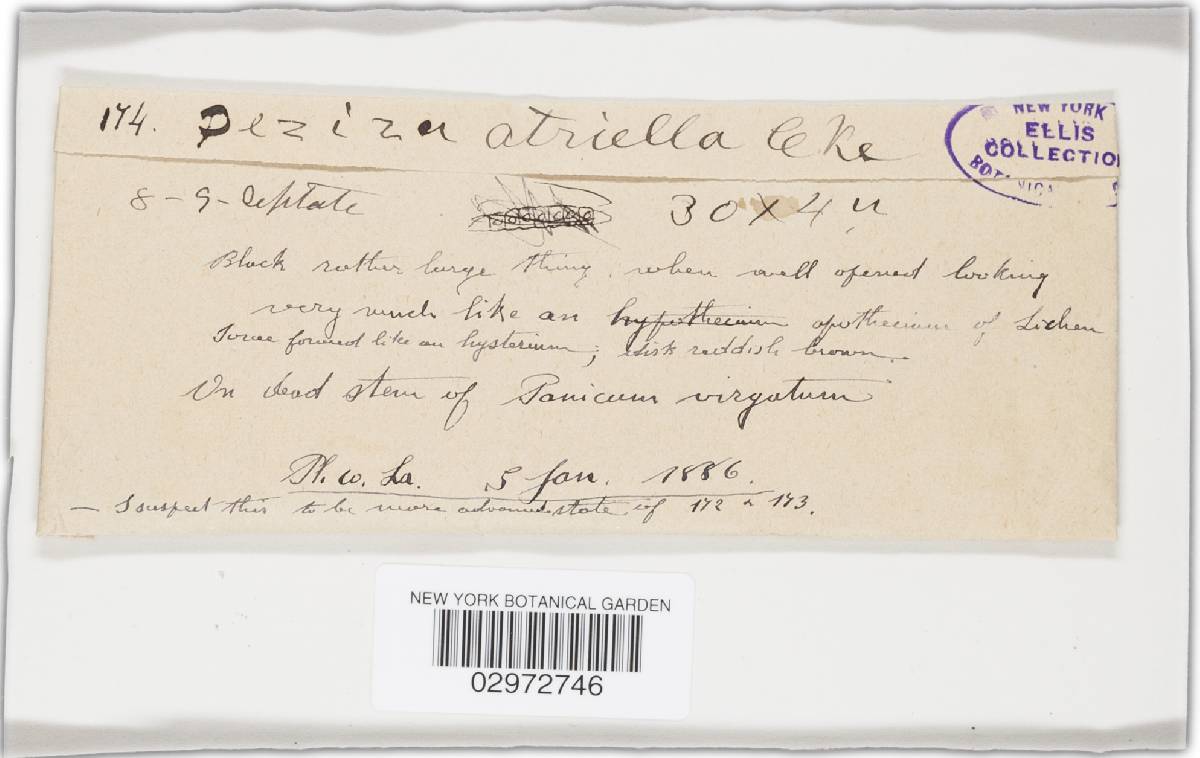 174. Peziza atriella Cke
NEW YORK
ELLIS
COLLECTIO
BOTANICA
8-9-septate 30 x 4 u
Black rather large thing, when well opened looking
very much like an hypothecium apothecium of Lichen
Some formed like an hysterium; disk reddish brown.
On dead stem of Panicum virgatum
Pl. w. La. 5 Jan. 1886.
— I suspect this to be more advanced state of 172 & 173.
NEW YORK BOTANICAL GARDEN
02972746